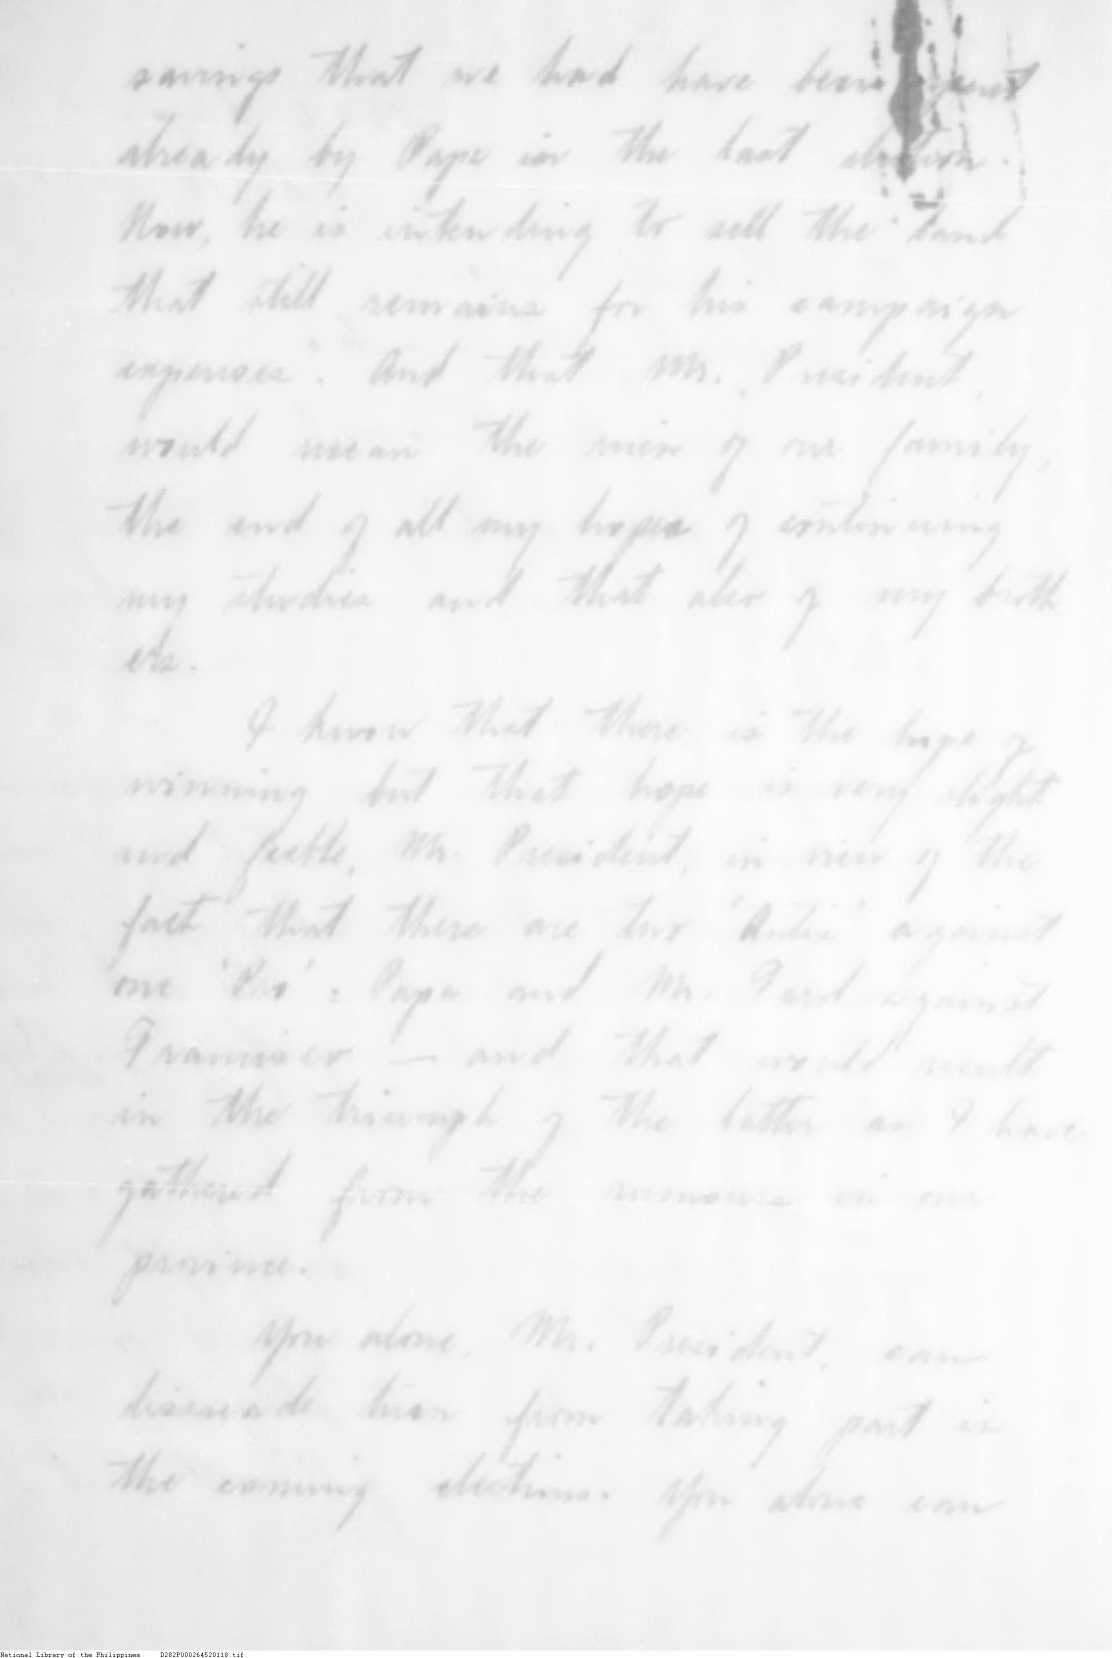 savings that we had have been spent
already by Papa in the last election.
Now, he is intending to sell the land
that still remains for his campaign
expenses. And that Mr. President,
would mean the ruin of our family,
the end of all my hopes of continuing
my studies and that also of my broth
ers.
I know that there is the hope of
winning but that hope is very slight
and feeble, Mr. President, in view of the
fact that there are two 'Antis' against
one 'Pro': Papa and Mr. against
Francisco — and that would result
in the triumph of the latter as I have
gathered from the rumours in our
province.
You alone, Mr. President, can
dissuade him from taking part in
the coming elections. You alone can
National Library of the Philippines D282P000264520118.tif